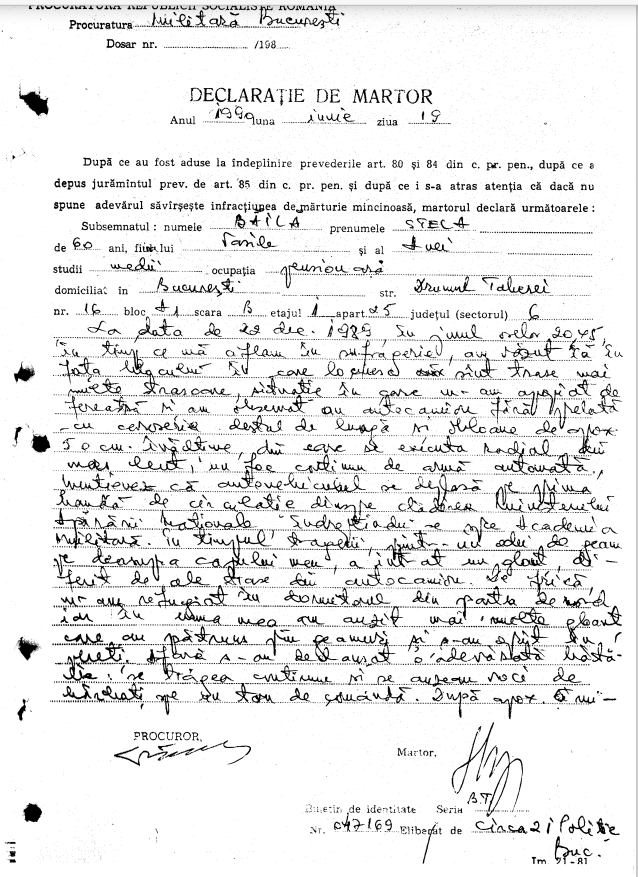 PROCURATURA REPUBLICII SOCIALISTE ROMÂNIA
Procuratura Militară București
Dosar nr. /198
DECLARAȚIE DE MARTOR
Anul 1990 luna iunie ziua 19
După ce au fost aduse la îndeplinire prevederile art. 80 și 84 din c. pr. pen., după ce a
depus jurămîntul prev. de art. 85 din c. pr. pen. și după ce i s-a atras atenția că dacă nu
spune adevărul săvîrșește infracțiunea de mărturie mincinoasă, martorul declară următoarele :
Subsemnatul : numele prenumele STELA
de 60 ani, fiului Vasile și al Anei
studii medii ocupația pensionară
domiciliat în București str. Drumul Taberei
nr. 16 bloc A1 scara B etajul 1 apart 25 județul (sectorul) 6
La data de 22 dec. 1989, în jurul orelor 2045,
în timp ce mă aflam în sufragerie, am văzut că în
fața blocului în care locuiesc sînt trase mai
multe trasoare, situație în care m-am apropiat de
fereastră și am observat un autocamion fără prelată
cu caroserie destul de lungă și obloane de aprox.
50 cm. înălțime, din care se executa radial, din
mers lent, un foc continuu de armă automată.
Menționez că autovehiculul se deplasa pe prima
bandă de circulație dinspre clădirea Ministerului
Apărării Naționale îndreptîndu-se spre Academia
Militară. În timpul tragerii, printr-un ochi de geam
pe deasupra capului meu, a intrat un glonț di-
ferit de cele trase din autocamion. De frică,
m-am refugiat în dormitorul din partea de nord
iar în urma mea am auzit mai multe gloanțe
care au pătruns prin geamuri și s-au oprit în
pereți. Afară s-a declanșat o adevărată bătă-
lie: se trăgea continuu și se auzeau voci de
bărbați pe un ton de comandă. După aprox. 5 mi-
PROCUROR,
Martor,
Buletin de identitate Seria B.T.
Nr. 047169 Eliberat de Circa 21 Poliție
Buc.
Im. 21-81